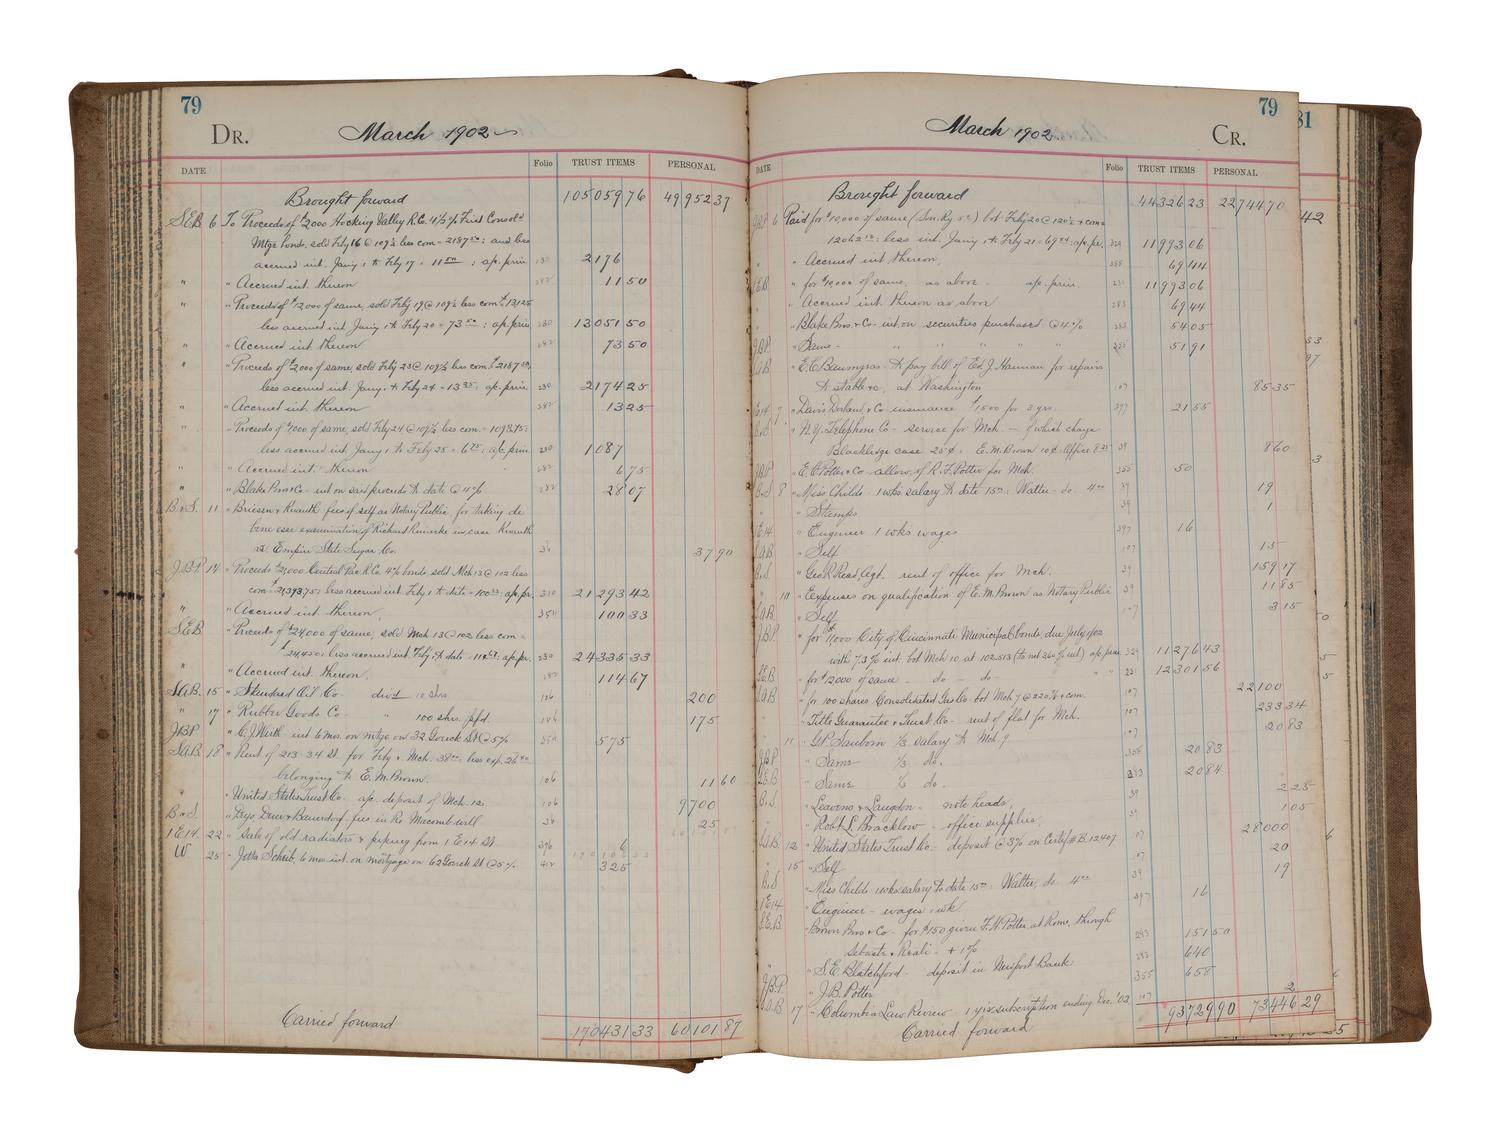 79
DR. March 1902
DATE Folio TRUST ITEMS PERSONAL
Brought forward 105059 76 49952 37
S.E.B. 6 To Proceeds of $2000 Hocking Valley R.C. 4½% First Consol'd
Mtge bonds, sold Feby 16 @ 109½ less com = 2187 50: and less
accrued int. Jany 1 to Feby 17 = 11 50: a/c. prin. 2176
" " Accrued int. thereon 11 50
" " Proceeds of $12000 of same, sold Feby 19 @ 109½ less com. $13125
less accrued int. Jany 1 to Feby 20 = 73 50: a/c. prin 230 13051 50
" " Accrued int. thereon 73 50
" " Proceeds of $2000 of same, sold Feby 23 @ 109½ less com. $2187 50,
less accrued int. Jany 1 to Feby 24 = 13 25: a/c. prin. 230 2174 25
" " Accrued int. thereon 13 25
" " Proceeds of $1000 of same, sold Feby 24 @ 109½ less com. = 1093.75:
less accrued int. Jany 1 to Feby 25 = 6 75: a/c. prin 230 1087
" " Accrued int. thereon 6 75
" " Blake Bros & Co - int on said proceeds to date @ 4% 28 07
B & S. 11 " Briesen & Knauth fees of self as Notary Public, for taking de
bene esse examination of Richard Reinicke in case Knauth
vs. Empire State Sugar Co. 37 90
J.B.P. 14 " Proceeds $21,000 Central Pac. R. Co. 4% bonds, sold Mch 13 @ 102 less
com. $21,393.75: less accrued int. Feby 1 to date = 100 33: a/c. pr. 310 21293 42
" " Accrued int. thereon, 354 100 33
S.E.B. " Proceeds of $24,000 of same, sold Mch 13 @ 102 less com =
$24,450: less accrued int. Feby 1 to date = 114 67: a/c. pr. 230 24335 33
" " Accrued int. thereon. 114 67
S.A.B. 15 " Standard Oil Co. div'd 10 shrs. 106 200
" 17 " Rubber Goods Co - " 100 shrs. pfd. 106 175
J.B.P. " C. J. Wirth int. 6 mos. on mtge on 32 Goerck St @ 5% 354 575
S.A.B. 18 " Rent of 213. 34 St. for Feby & Mch. less exp.
belonging to E. M. Brown. 106 11 60
" " United States Trust Co. a/c. deposit of Mch. 12 106 9700
B & S. " Deyo, Duer & Bauerdorf, fees in Re Macomb will 36 25
1 E 14. 22 " Sale of old radiators & piping from 1 E 14 St. 296 6
W. 25 " Scheib, 6 mos. int. on mortgage on 62 Goerck St @ 5% 412 325
Carried forward 170431 33 60101 87
79 81
March 1902. CR.
DATE Folio TRUST ITEMS PERSONAL
Brought forward 44326 23 22744 70
J.B.P. 6 Paid for $10,000 of same (Son. Ry. 5s) bot Feby 20 @ 120½ + com =
less int. Jany 1 to Feby 21 = 69 44: a/c. pr. 329 11993 06
" Accrued int. thereon, 355 69 44
S.E.B. " for $10,000 of same, as above - a/c. prin. 231 11993 06
" Accrued int. thereon as above 283 69 44
" Blake Bros. & Co - int. on securities purchased @ 4% 283 54 05
J.B.P. " Same - " " " " " 355 51 91
S.A.B. " E.C. Baumgras - to pay bill of Ed J. Hannan for repairs
to stable &c, at Washington 107 85 35
1 E 14. 7 " Davis Dorland & Co - insurance $1500 for 3 yrs. 297 21 55
B & S " N.Y. Telephone Co - service for Mch. - of which charge
Blackledge case 25¢. E.M. Brown 10¢: Office 8 25 39 8 60
J.B.P. " E. C. Potter & Co - allow. of R. F. Potter for Mch. 355 50
B & S. 8 " Miss Childs 1 wks salary to date 15 00: Walter - do. 4 00 39 19
" Stamps 39 1
1 E 14. " Engineer 1 wks wages 297 16
S.A.B. " Self 107 15
B & S. " Geo R Read, Agt. rent of office for Mch. 39 159 17
" 10 " Expenses on qualification of E. M. Brown as Notary Public 39 11 85
S.A.B. " Self 107 3 15
J.B.P. " for $11,000 City of Cincinnati Municipal bonds, due July 1/02
with 7.3% int. bot Mch 10, at 102.513 (to net 2.60% int) a/c. prin 329 11276 43
S.E.B. " for $12000 of same - do - do - " " 231 12301 56
S.A.B. " for 100 shares Consolidated Gas Co. bot Mch 7 @ 220⅞ + com. 107 22100
" Title Guarantee & Trust Co - rent of flat for Mch. 107 23 34
11 " G.P. Sanborn ⅓ salary to Mch. 9 107 20 83
J.B.P. " Same ⅓ do. 355 20 83
S.E.B. " Same ⅓ do. 283 20 84
B & S. " Leavens & Langdon - note heads, 39 2 25
" Robt L. Bracklow - office supplies, 39 1 05
S.A.B. 12 " United States Trust Co: - deposit @ 3% on Certif # B. 12407 107 28000
" 15 " Self 107 20
B & S. " Miss Childs 1 wks salary to date 15 00: Walter, do. 4 00 39 19
1 E 14. " Engineer - wages 1 wk. 297 16
S.E.B. " Brown Bros & Co - for $150 given F. H. Potter, at Rome, through
Sebasti & Reali - + 1% 283 151 50
" " S.E. Blatchford - deposit in Newport Bank 283 640
J.B.P. " J.B. Potter 355 658
S.A.B. 17 " Columbia Law Review 1 yr's subscription ending Dec. '02 107 2
Carried forward 93729 90 73446 29